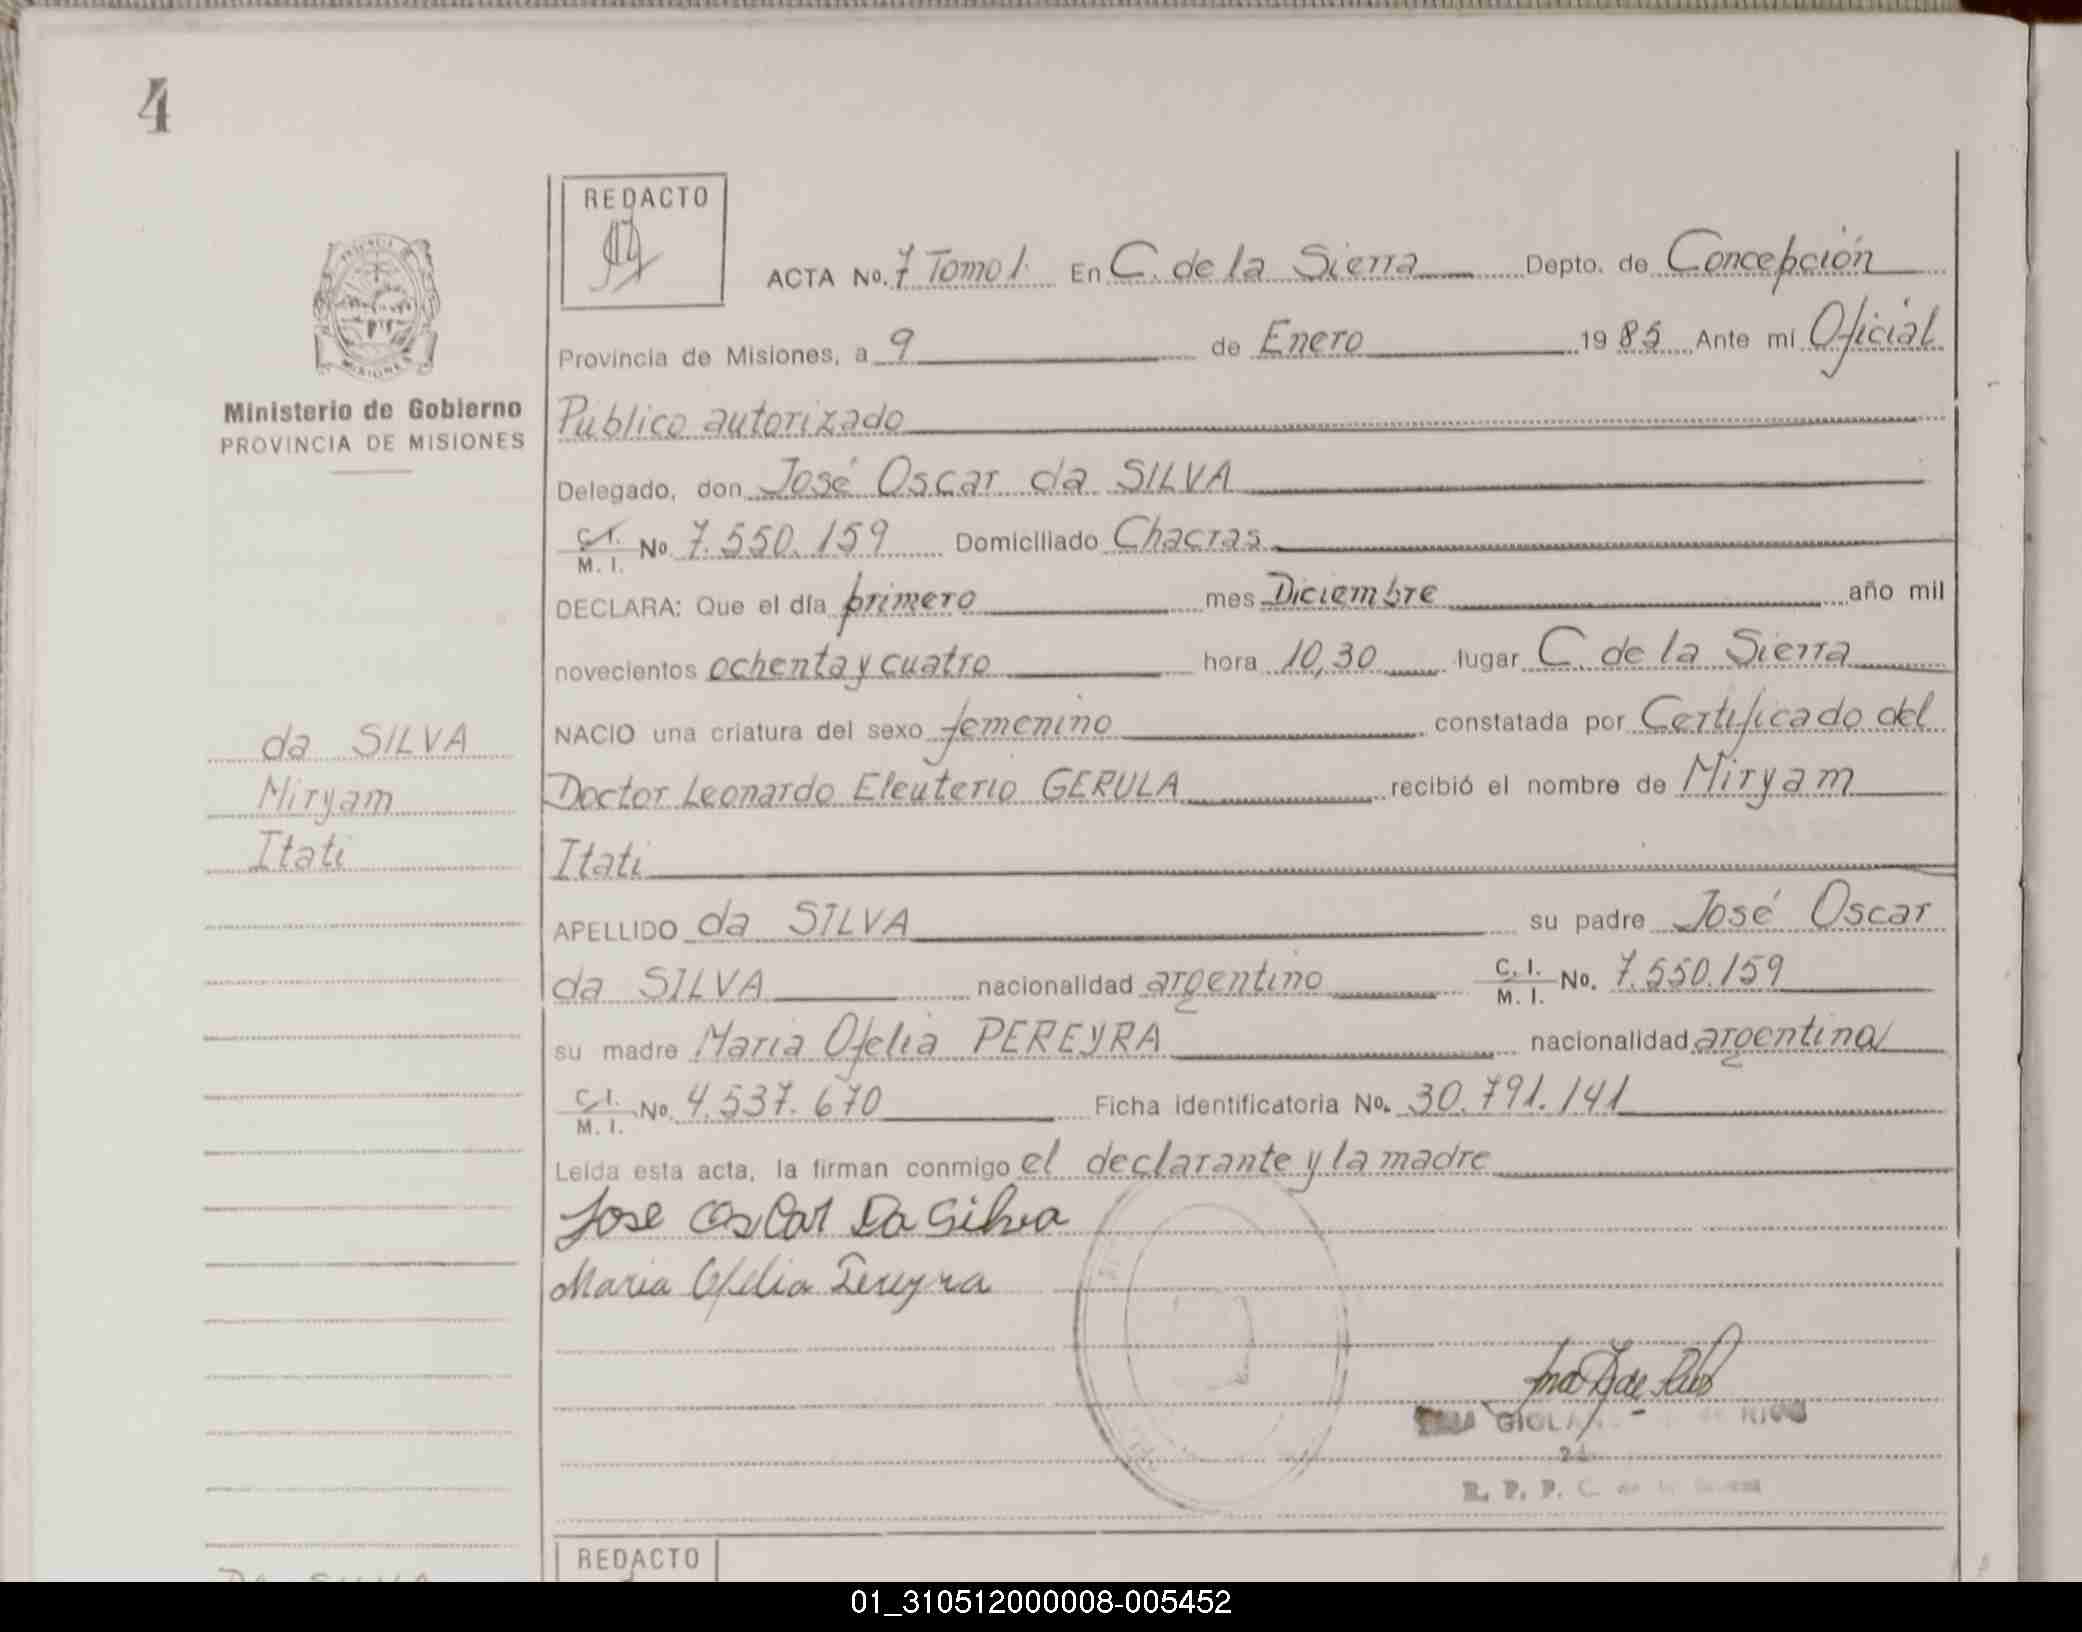 4
REDACTO
ACTA No. 7 Tomo 1. En C. de la Sierra Depto. de Concepción
Provincia de Misiones, a 9 de Enero 1985 Ante mí Oficial
Ministerio de Gobierno
PROVINCIA DE MISIONES
Público autorizado
Delegado, don José Oscar da SILVA
C. I. M. I. No. 7.550.159 Domiciliado Chacras
DECLARA: Que el día primero mes Diciembre año mil
novecientos ochenta y cuatro hora 10,30 lugar C. de la Sierra
NACIO una criatura del sexo femenino constatada por Certificado del
Doctor Leonardo Eleuterio GERULA recibió el nombre de Miryam
Itati
da SILVA
Miryam
Itati
APELLIDO da SILVA su padre José Oscar
da SILVA nacionalidad argentino C. I. M. I. No. 7.550.159
su madre Maria Ofelia PEREYRA nacionalidad argentina
C. I. M. I. No. 4.537.670 Ficha identificatoria No. 30.791.141
Leída esta acta, la firman conmigo el declarante y la madre
Jose Oscar Da Silva
Maria Ofelia Pereyra
R. P. P. C. de la Sierra
REDACTO
DA SILVA
01_310512000008-005452